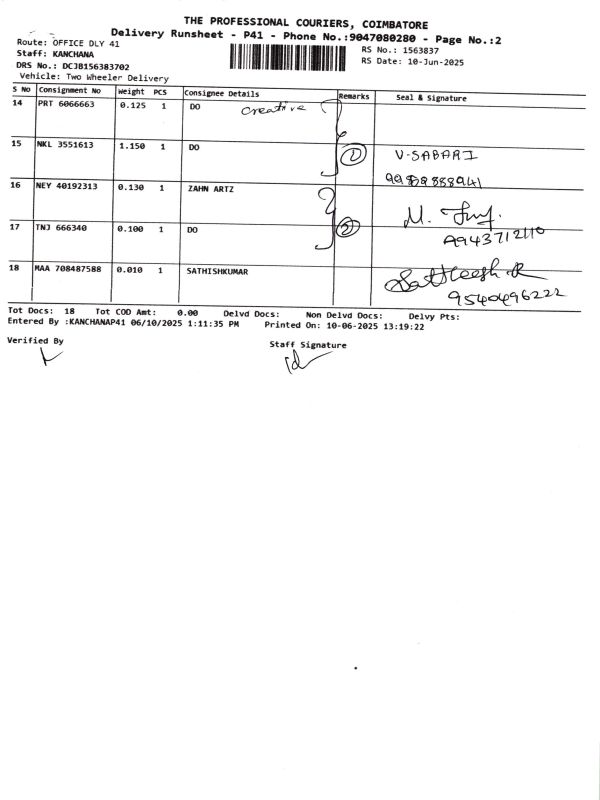 THE PROFESSIONAL COURIERS, COIMBATORE
Delivery Runsheet - P41 - Phone No.:9047080280 - Page No.:2
Route: OFFICE DLY 41
RS No.: 1563837
Staff: KANCHANA
RS Date: 10-Jun-2025
DRS No.: DCJB156383702
Vehicle: Two Wheeler Delivery
S No Consignment No Weight PCS Consignee Details Remarks Seal & Signature
14 PRT 6066663 0.125 1 DO creative
15 NKL 3551613 1.150 1 DO 1 V-SABARI
16 NEY 40192313 0.130 1 ZAHN ARTZ
M.
17 TNJ 666340 0.100 1 DO 2
18 MAA 708487588 0.010 1 SATHISHKUMAR Satheesh R
9540496222
Tot Docs: 18 Tot COD Amt: 0.00 Delvd Docs: Non Delvd Docs: Delvy Pts:
Entered By :KANCHANAP41 06/10/2025 1:11:35 PM Printed On: 10-06-2025 13:19:22
Verified By
Staff Signature